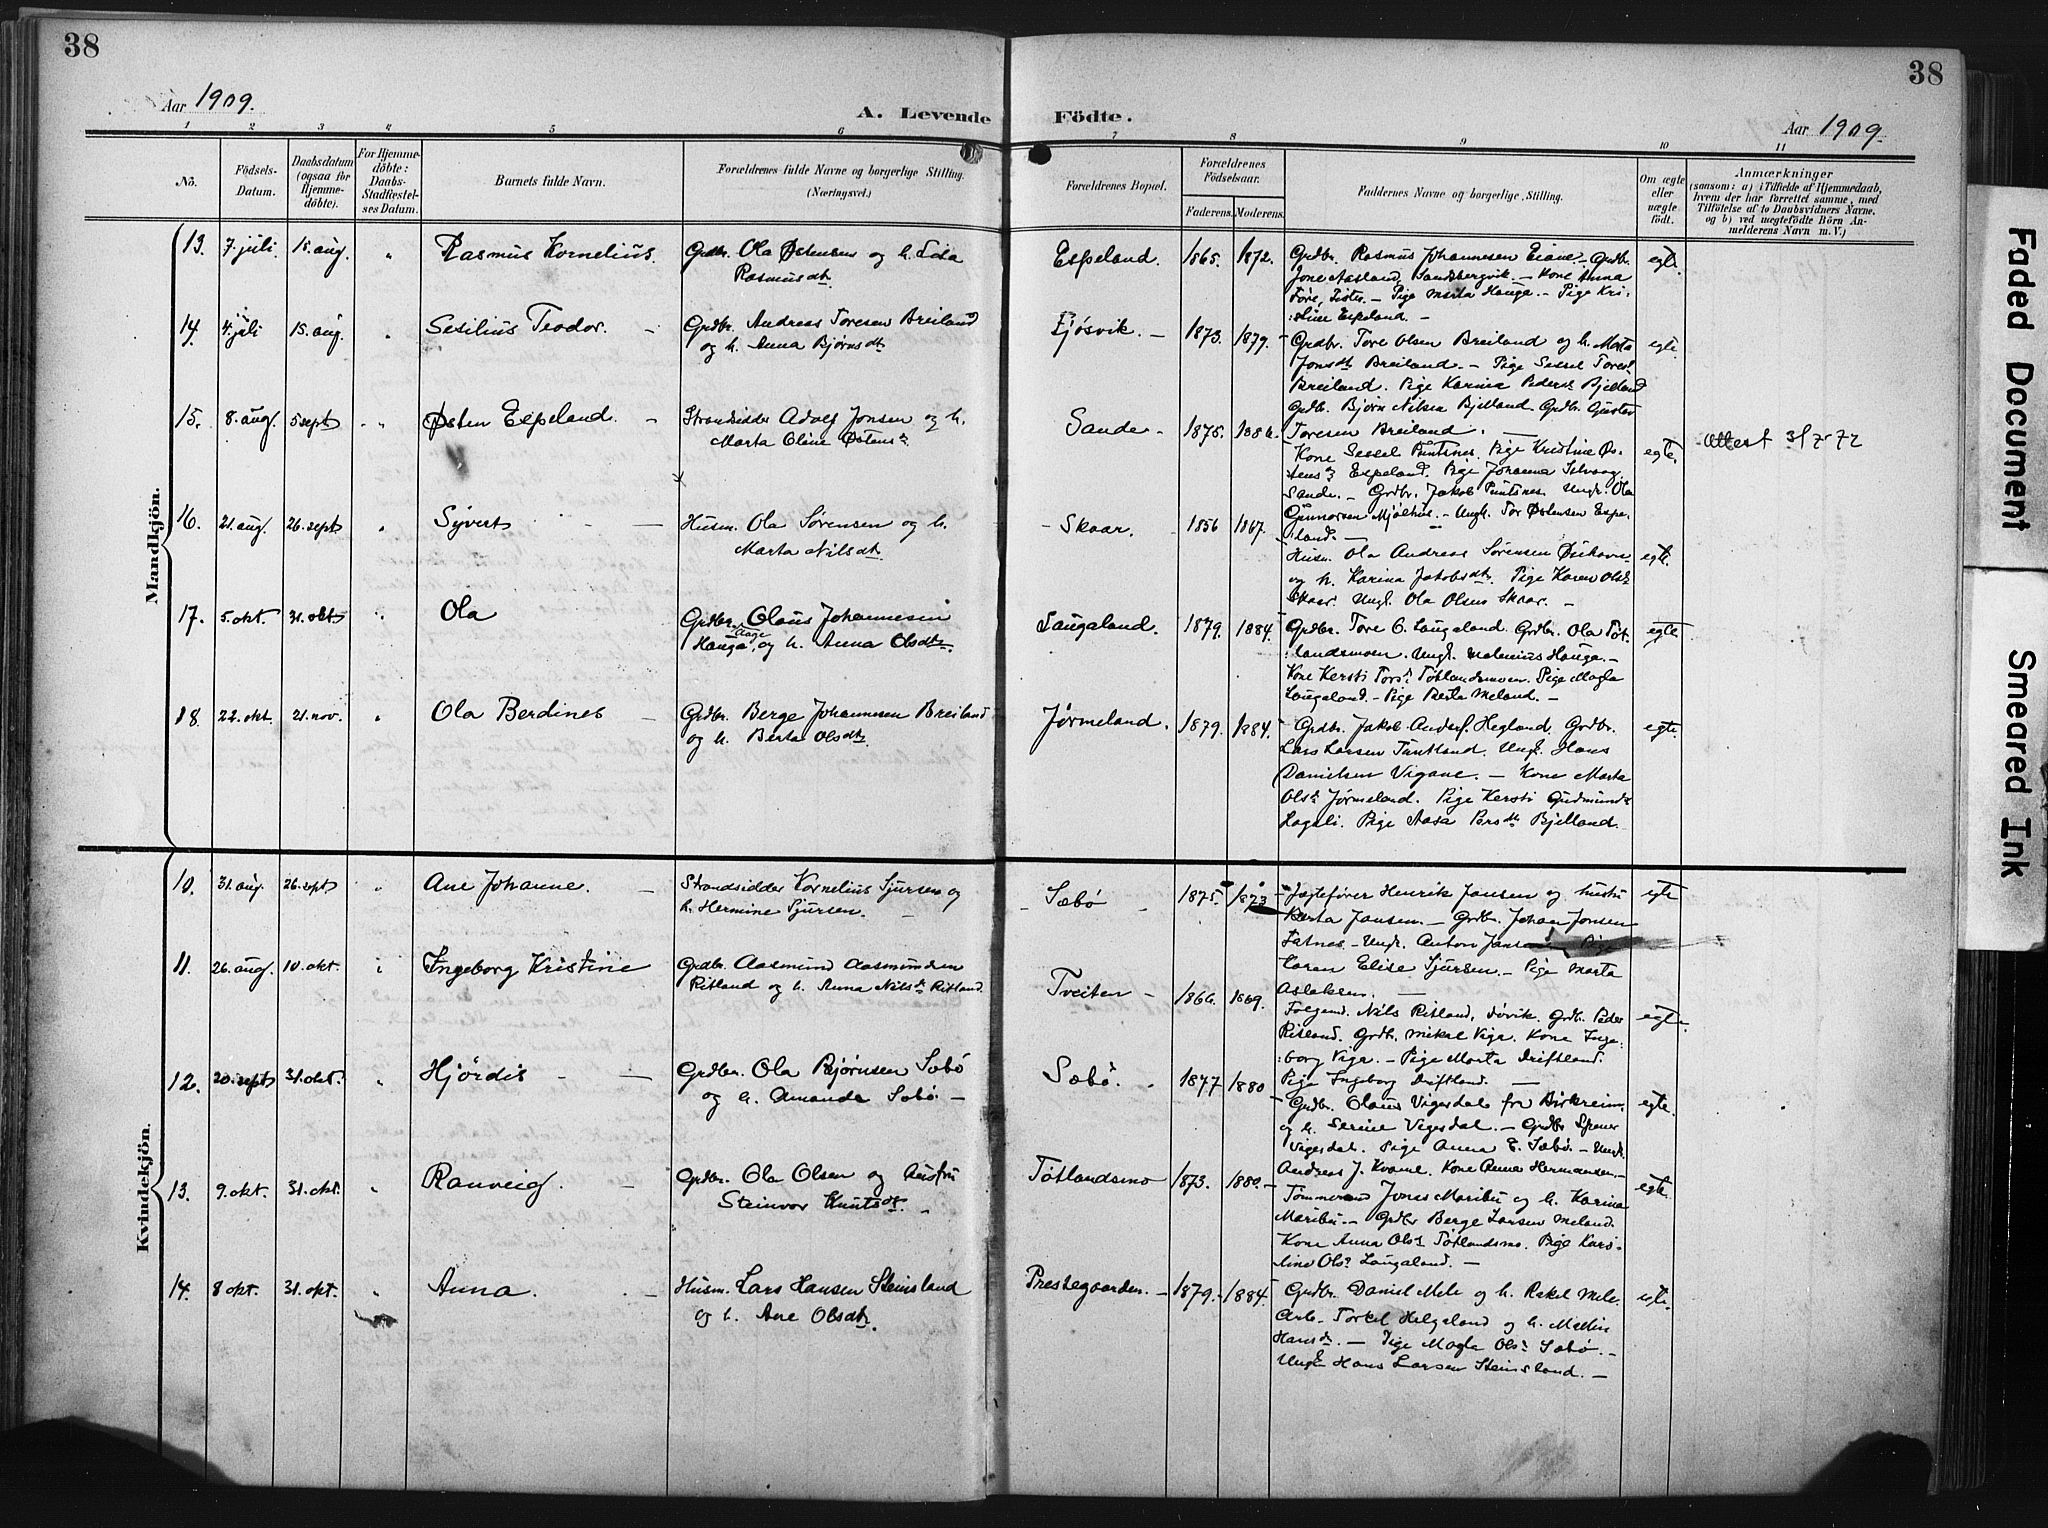 38
38
Aar 1909.
A. Levende Födte.
Aar 1909.
1 2 3 4 5 6 7 8 9 10 11
No.
Födsels-
Datum.
Daabsdatum
(ogsaa for
Hjemme-
döbte).
For Hjemme-
döbte:
Daabs-
Stadfæstel-
ses Datum.
Barnets fulde Navn.
Forældrenes fulde Navne og borgerlige Stilling.
(Næringsvei.)
Forældrenes Bopæl.
Forældrenes
Födselsaar.
Faderens. Moderens.
Faddernes Navne og borgerlige Stilling.
Om ægte
eller
uægte
födt.
Anmærkninger
(saasom: a) i Tilfælde af Hjemmedaab,
hvem der har forrettet samme, med
Tilföielse af to Daabsvidners Navne.
og b) ved uegtefödte Börn An-
melderens Navn m. V.)
Mandkjön.
13. 7. juli 15. aug. " Rasmus Kornelius.
Grdbr. Ola Østensen og h.
Rasmusdt.
Espeland. 1865. 1872.
Grdbr. Rasmus Johannesen Eiane - Grdbr.
Jone Aasland, Sandsbergvik. - Kone Anna
Føre, Fister. - Pige Marta Hauga. - Pige Kri-
stine Espeland. -
egte.
14. 4. juli 15. aug. " Sesilius Teodor. -
Grdbr. Andreas Toresen Breiland
og h. Anna Bjørnsdt.
Fjøsvik. - 1873. 1879.
Grdbr. Tore Olsen Breiland og h. Marta
Jonsdt. Breiland. - Pige Sessel Tores
Breiland. Pige Karina Peders. Bjelland
Grdbr. Bjørn Nilsen Bjelland. Grdbr. Gustav
Toresen Breiland.
egte.
15. 8. aug. 5 sept " Østen Espeland. -
Strandsidder Adolf Jonsen og h.
Marta Oline Østens.
Sande - 1875. 1886.
Kone Sessel Puntsnes. Pige Kristine Øs-
tens. Espeland. Pige Johanna Selvaag
Sande. - Grdbr. Jakob Puntsnes. Ungk. Ola
Gunnarsen Mjølhus. - Ungk. Tor Østensen Espe-
land. -
egte.
Attest 3/7-72
16. 21. aug. 26. sept " Syvert -
Husm. Ola Sørensen og h.
Marta Nilsdt.
- Skaar. 1856 1867.
Husm. Ola Andreas Sørensen
og h. Karina Jakobsdt. Pige Karen Ols.
Skaar. Ungk. Ola Olsen Skaar. -
egte.
17. 5. okt. 31. okt " Ola
Grdbr. Olaus Johannesen
Hauga, Aage og h. Anna Olsdt.
Laugaland. 1879. 1884.
Grdbr. Tore O. Laugaland. Grdbr. Ola Tøt-
landsmoen. Ungk. Malenius Hauga. -
Kone Kersti Tors. Tøtlandsmoen. Pige Magla
Laugaland. - Pige Berta Meland. -
egte.
18. 22. okt. 21. nov. " Ola Berdines -
Grdbr. Berge Johannesen Breiland
og h. Berta Olsdt.
Jørmeland. 1879. 1884.
Grdbr. Jakob Anders. Hegland. Grdbr.
Lars Larsen Tuntland. Ungk. Hans
Danielsen Vigane. - Kone Marta
Ols. Jørmeland. Pige Kersti Gudmunds.
Lageli. Pige Aasa Persdt. Bjelland.
egte.
Kvindekjön.
10. 31. aug. 26. sept " Ane Johanne. -
Strandsidder Kornelius Sjursen og
h. Hermine Sjursen. -
- Sæbø - 1875. 1873
Jægtefører Henrik Jansen og hustru
Berta Jansen. - Grdbr. Johan Jonsen
Fatnes. - Ungk. Anton Jansen Pige
Karen Elise Sjursen. - Pige Marta
Aslaksen. -
egte
11. 26. aug. 10. okt. " Ingeborg Kristine
Grdbr. Aasmund Aasmundsen
Ritland og h. Anna Nilsdt. Ritland.
Tveiten - 1866. 1869.
Folgemd. Nils Ritland, Jøvik. Grdbr. Peder
Ritland. Grdbr. Mikal Viga. Kone Inge-
borg Viga. - Pige Marta Driftland.
Pige Ingeborg Driftland. -
egte.
12. 20. sept 31. okt. " Hjørdis - -
Grdbr. Ola Bjørnsen Sæbø
og h. Amanda Sæbø -
Sæbø. - 1877 1880
Grdbr. Olaus Vigesdal fra Birkreim
og h. Serine Vigesdal. - Grdbr.
Vigesdal. Pige Anna E. Sæbø. - Ungk.
Andreas J. Kvame. Kone Anna Hermansen. -
egte.
13. 9. okt. 31. okt. " Ranveig. -
Grdbr. Ola Olsen og hustru
Steinvor Knutsdt. -
Tøtlandsmo 1873. 1880.
Tømmermd Jonas Maribu og h. Karina
Maribu. - Grdbr Berge Larsen Meland.
Kone Anna Ols. Tøtlandsmo. Pige Kars-
tine Ols. Laugaland. -
egte.
14. 8 okt. 31. okt. " Anna. -
Husm. Lars Hansen Steinsland
og h. Ane Olsdt.
Prestegaarden. - 1879. - 1884.
Grdbr. Daniel Mele og h. Rakel Mele.
Arb. Torkel Helgeland og h. Mallin
Hansdt. - Pige Magla Ols. Sæbø. -
Ungk. Hans Larsen Steinsland. -
egte.
Faded Document
Smeared Ink